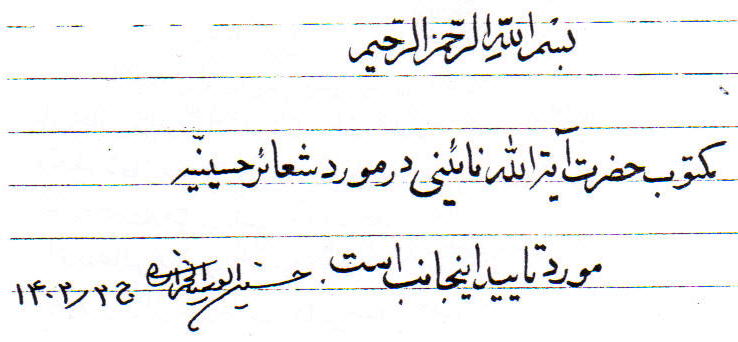 بسم الله الرحمن الرحیم
مکتوب حضرت آیة الله نائینی در مورد شعائر حسینیّه
مورد تایید اینجانب است. حسین الوحید الخراسانی ج ۲ ر ۱۴۰۲